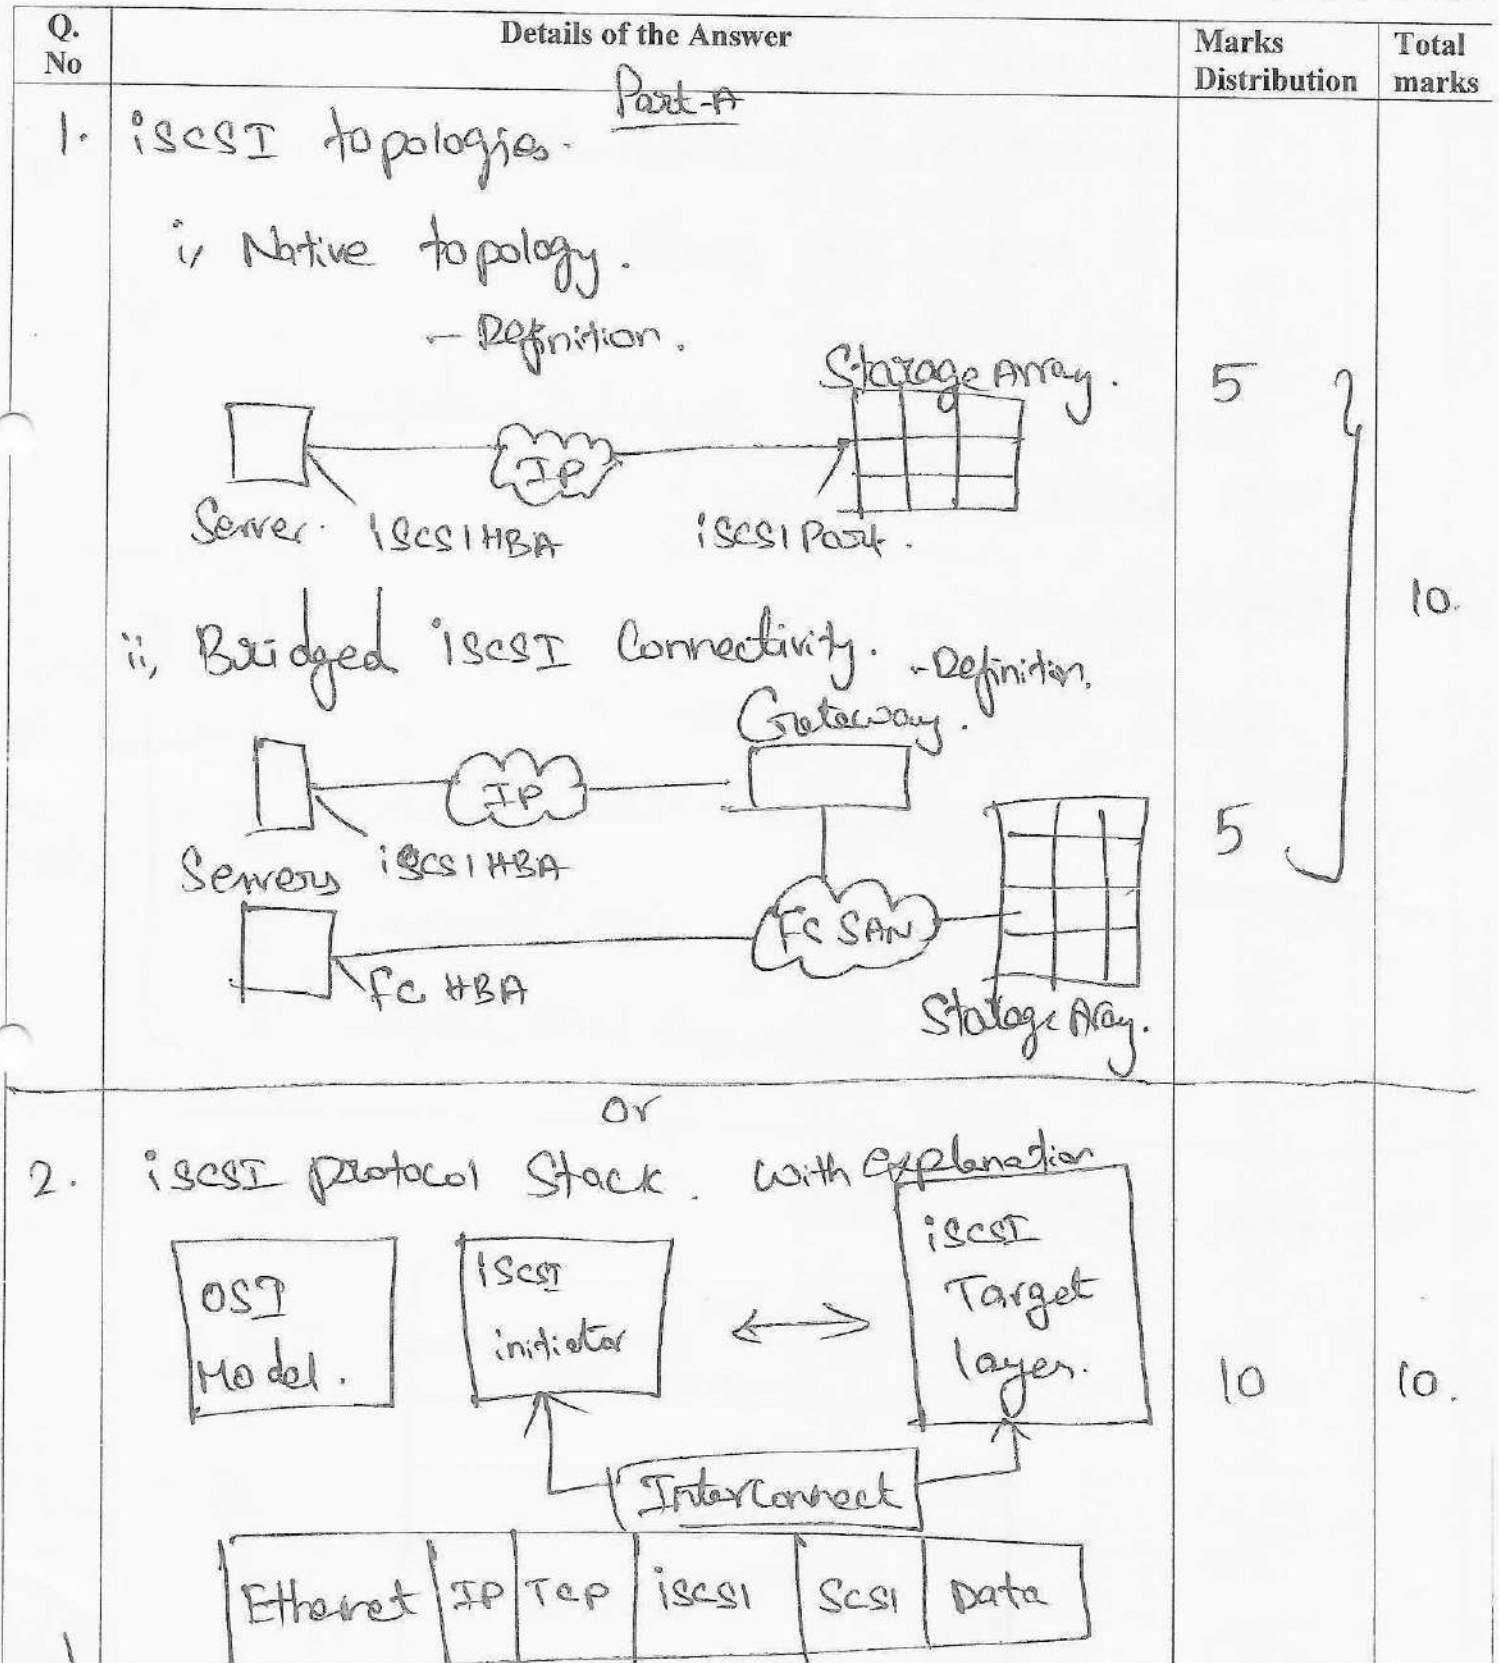 Q. No Details of the Answer Marks Distribution Total marks
Part-A
1. iSCSI topologies.
i, Native topology.
- Definition.
Storage Array. 5
IP
Server. iSCSI HBA iSCSI Port.
10.
ii, Bridged iSCSI Connectivity. - Definition.
Gateway.
IP
5
Servers iSCSI HBA
FC SAN
FC HBA
Storage Array.
or
2. iSCSI protocol Stack. With explanation
OSI Model. iSCSI initiator iSCSI Target layer.
10 10.
Interconnect
Ethernet IP TCP iSCSI SCSI Data